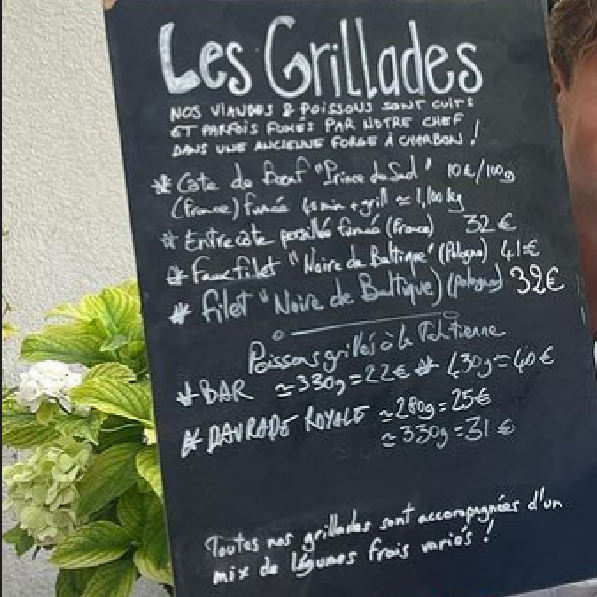 Les Grillades
NOS VIANDES & POISSONS SONT CUITS
ET PARFOIS FUMÉS PAR NOTRE CHEF
DANS UNE ANCIENNE FORGE À CHARBON !
* Côte de Bœuf "Prince du Sud" 10€/100g
(France) fumée 40min + grill ≃ 1,100kg
* Entrecôte persillée fumée (France) 32€
* Faux filet "Noire de Baltique" (Pologne) 41€
* filet "Noire de Baltique) (Pologne) 32€
Poissons grillés à la Tahitienne
* BAR ≃330g=22€ * 430g=40€
* DAURADE ROYALE ≃280g=25€
≃330g=31€
Toutes nos grillades sont accompagnées d'un
mix de légumes frais variés !